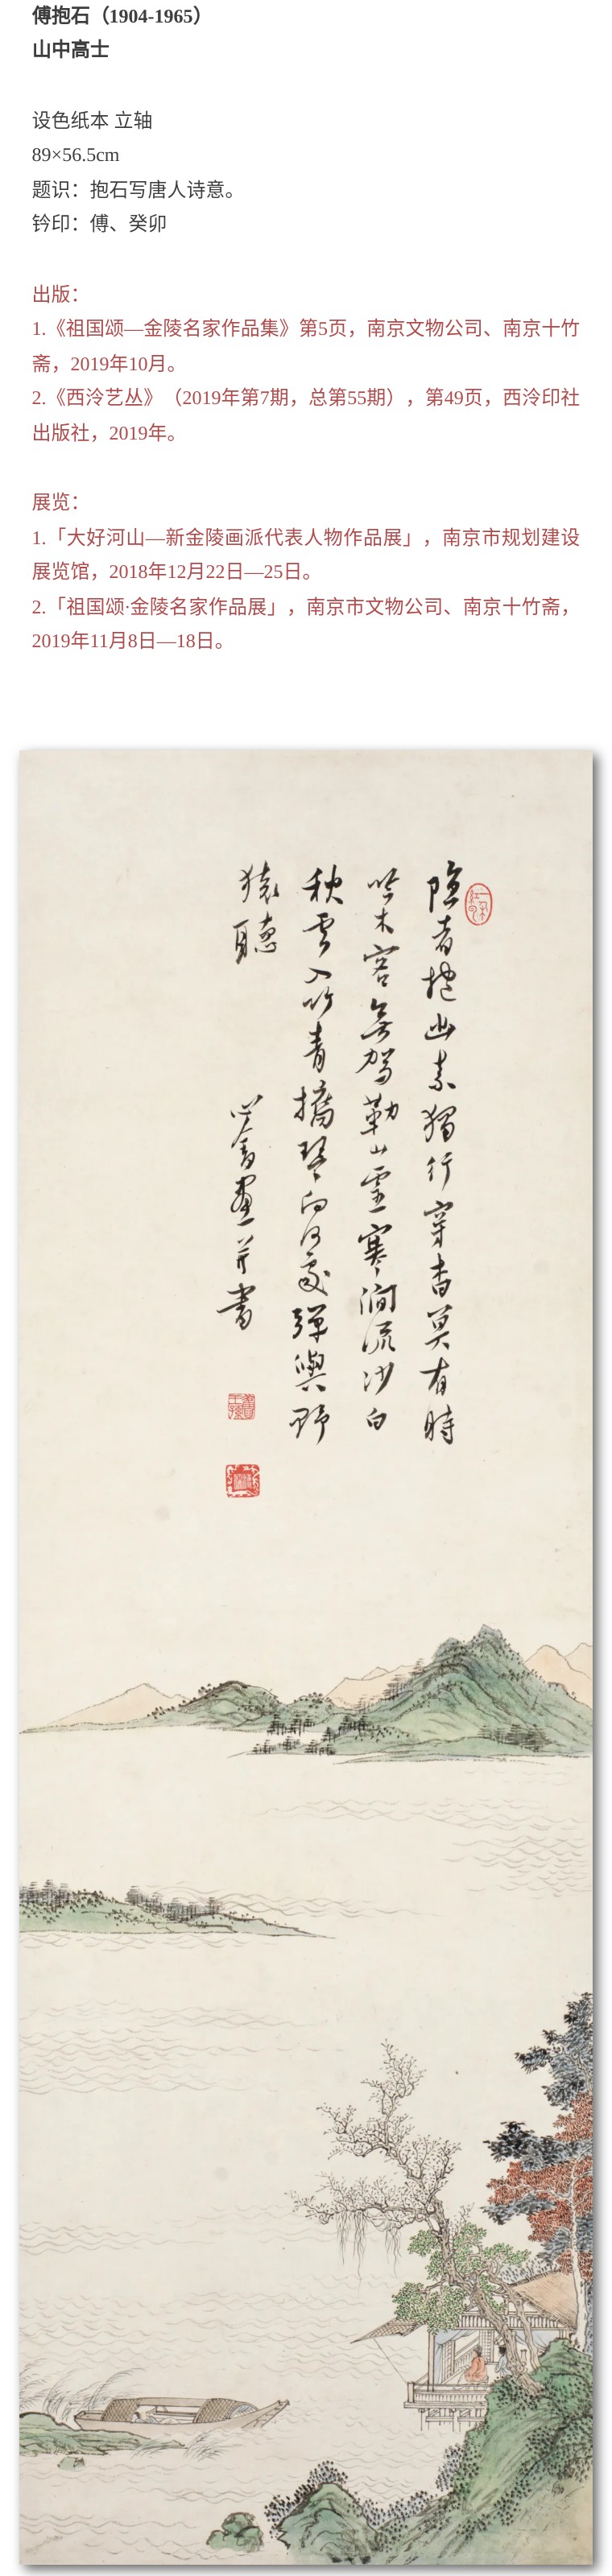 傅抱石（1904-1965）
山中高士
设色纸本 立轴
89×56.5cm
题识：抱石写唐人诗意。
钤印：傅、癸卯
出版：
1.《祖国颂—金陵名家作品集》第5页，南京文物公司、南京十竹
斋，2019年10月。
2.《西泠艺丛》（2019年第7期，总第55期），第49页，西泠印社
出版社，2019年。
展览：
1.「大好河山—新金陵画派代表人物作品展」，南京市规划建设
展览馆，2018年12月22日—25日。
2.「祖国颂·金陵名家作品展」，南京市文物公司、南京十竹斋，
2019年11月8日—18日。
隐者抱幽素獨行穿杳莫有時
吟木客無駕勒山靈寒澗流沙白
秋雲入竹青攜琴向何處彈與野
猿聽
心畬畫并書